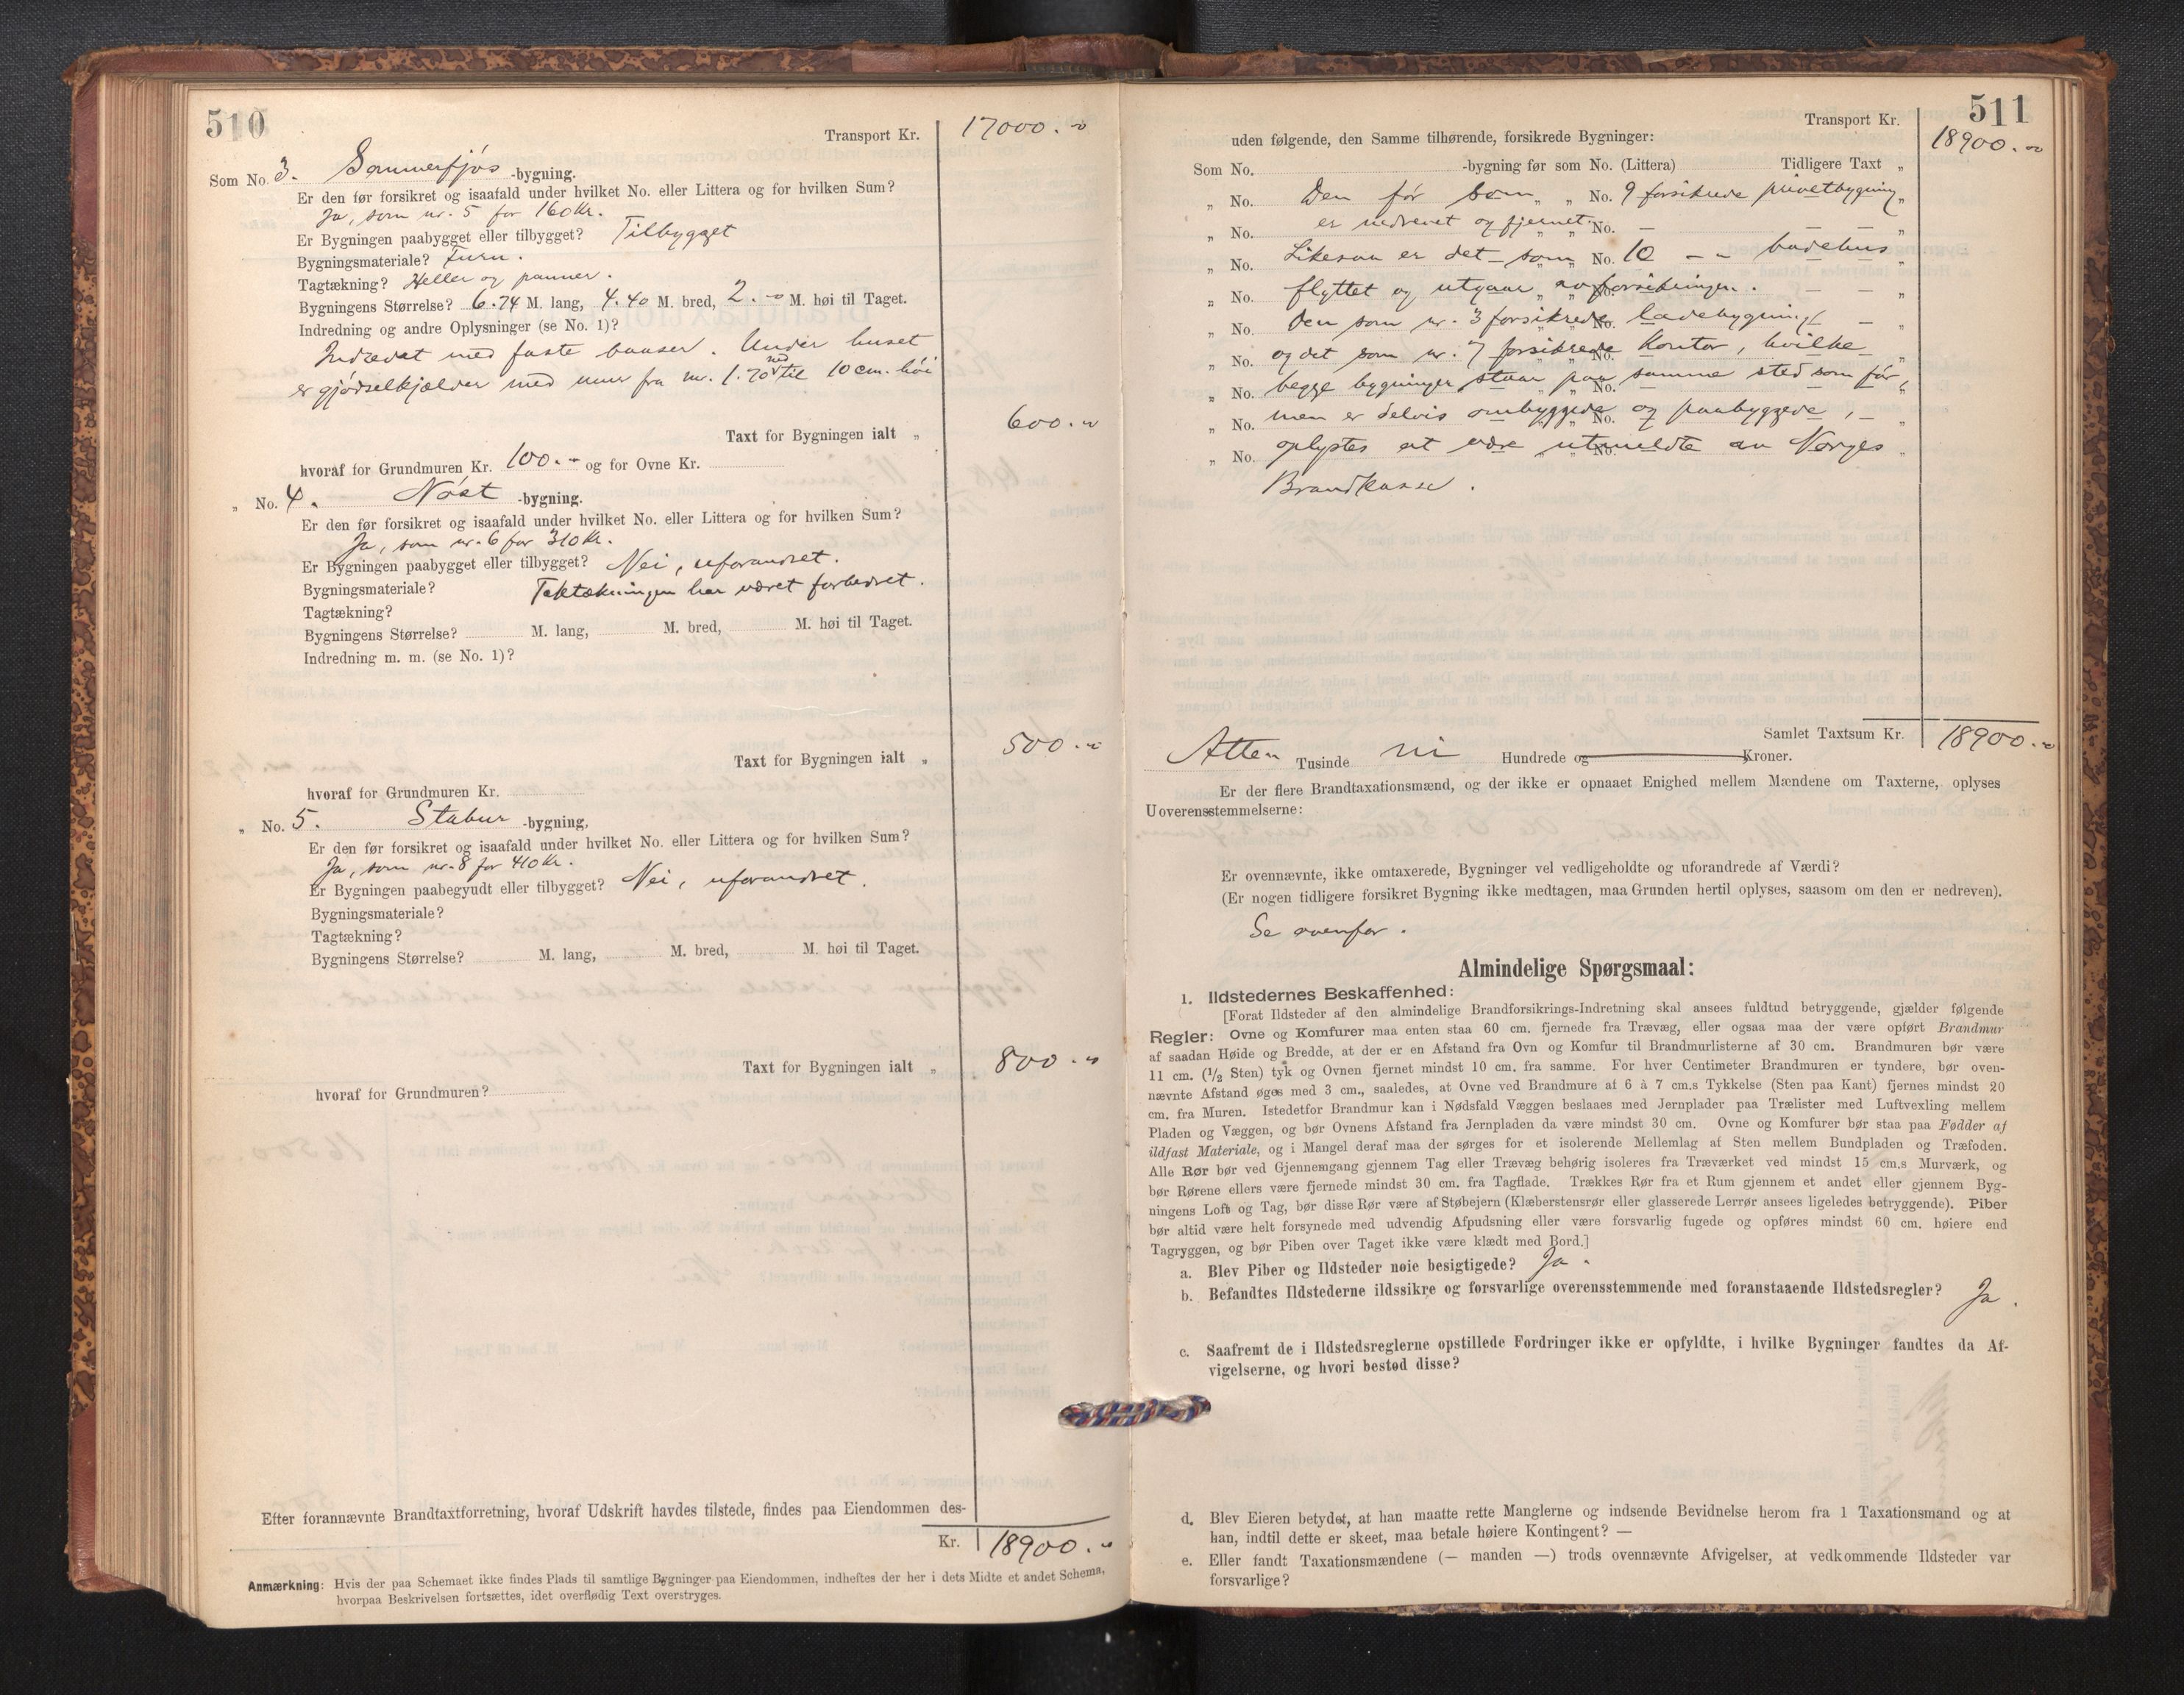 510
Transport Kr. 17000.-
Som No. 3. Sommerfjøs -bygning.
Er den før forsikret og isaafald under hvilket No. eller Littera og for hvilken Sum?
Ja, som nr. 5 for 160 Kr.
Er Bygningen paabygget eller tilbygget? Tilbygget
Bygningsmateriale? Furu.
Tagtækning? Heller og panner.
Bygningens Størrelse? 6.74 M. lang, 4.40 M. bred, 2.- M. høi til Taget.
Indredning og andre Oplysninger (se No. 1)?
Indredet med faste baaser. Under huset
er gjødselkjælder med mur fra m. 1.70 ned til 10 cm. høi
Taxt for Bygningen ialt „ 600.-
hvoraf for Grundmuren Kr. 100.- og for Ovne Kr.
„ No. 4. Nøst -bygning.
Er den før forsikret og isaafald under hvilket No. eller Littera og for hvilken Sum?
Ja, som nr. 6 for 310 Kr.
Er Bygningen paabygget eller tilbygget? Nei, uforandret.
Bygningsmateriale? Taktækningen har været forbedret.
Tagtækning?
Bygningens Størrelse? M. lang, M. bred, M. høi til Taget.
Indredning m. m. (se No. 1)?
Taxt for Bygningen ialt „ 500.-
hvoraf for Grundmuren Kr.
„ No. 5. Stabur -bygning,
Er den før forsikret og isaafald under hvilket No. eller Littera og for hvilken Sum?
Ja, som nr. 8 for 410 Kr.
Er Bygningen paabegyudt eller tilbygget? Nei, uforandret.
Bygningsmateriale?
Tagtækning?
Bygningens Størrelse? M. lang, M. bred, M. høi til Taget.
Taxt for Bygningen ialt „ 800.-
hvoraf for Grundmuren?
Efter forannævnte Brandtaxtforretning, hvoraf Udskrift havdes tilstede, findes paa Eiendommen des-
Kr. 18900.-
Anmærkning: Hvis der paa Schemaet ikke findes Plads til samtlige Bygninger paa Eiendommen, indheftes der her i dets Midte et andet Schema,
hvorpaa Beskrivelsen fortsættes, idet overflødig Text overstryges.
511
Transport Kr. 18900.-
uden følgende, den Samme tilhørende, forsikrede Bygninger:
Som No. -bygning før som No. (Littera) Tidligere Taxt „
„ No. Den før som „ „ No. 9 forsikrede privetbygning „
„ No. er nedrevet og fjernet. „ „ No. — — — „
„ No. Likesaa er det som „ „ No. 10 — „ badehus „
„ No. flyttet og utgaar av forsikringen. „ „ No. — — „
„ No. Den som nr. 3 forsikrede ladebygning, No. — „
„ No. og det som nr. 7 forsikrede kontor, hvilke No. „
„ No. begge bygninger staar paa samme sted som før, No. „
„ No. men er delvis ombyggede og paabyggede, No. — „
„ No. oplystes at være utmeldte av Norges No. „
Brandkasse.
Samlet Taxtsum Kr. 18900.-
Atten Tusinde ni Hundrede og Kroner.
Er der flere Brandtaxationsmænd, og der ikke er opnaaet Enighed mellem Mændene om Taxterne, oplyses
Uoverensstemmelserne:
Er ovennævnte, ikke omtaxerede, Bygninger vel vedligeholdte og uforandrede af Værdi?
(Er nogen tidligere forsikret Bygning ikke medtagen, maa Grunden hertil oplyses, saasom om den er nedreven).
Se ovenfor.
Almindelige Spørgsmaal:
1. Ildstedernes Beskaffenhed:
[Forat Ildsteder af den almindelige Brandforsikrings-Indretning skal ansees fuldtud betryggende, gjælder følgende
Regler: Ovne og Komfurer maa enten staa 60 cm. fjernede fra Trævæg, eller ogsaa maa der være opført Brandmur
af saadan Høide og Bredde, at der er en Afstand fra Ovn og Komfur til Brandmurlisterne af 30 cm. Brandmuren bør være
11 cm. (1/2 Sten) tyk og Ovnen fjernet mindst 10 cm. fra samme. For hver Centimeter Brandmuren er tyndere, bør oven-
nævnte Afstand øges med 3 cm., saaledes, at Ovne ved Brandmure af 6 à 7 cm.s Tykkelse (Sten paa Kant) fjernes mindst 20
cm. fra Muren. Istedetfor Brandmur kan i Nødsfald Væggen beslaaes med Jernplader paa Trælister med Luftvexling mellem
Pladen og Væggen, og bør Ovnens Afstand fra Jernpladen da være mindst 30 cm. Ovne og Komfurer bør staa paa Fødder af
ildfast Materiale, og i Mangel deraf maa der sørges for et isolerende Mellemlag af Sten mellem Bundpladen og Træfoden.
Alle Rør bør ved Gjennemgang gjennem Tag eller Trævæg behørig isoleres fra Træværket ved mindst 15 cm.s Murværk, og
bør Rørene ellers være fjernede mindst 30 cm. fra Tagflade. Trækkes Rør fra et Rum gjennem et andet eller gjennem Byg-
ningens Loft og Tag, bør disse Rør være af Støbejern (Klæberstensrør eller glasserede Lerrør ansees ligeledes betryggende). Piber
bør altid være helt forsynede med udvendig Afpudsning eller være forsvarlig fugede og opføres mindst 60 cm. høiere end
Tagryggen, og bør Piben over Taget ikke være klædt med Bord.]
a. Blev Piber og Ildsteder nøie besigtigede? Ja.
b. Befandtes Ildstederne ildssikre og forsvarlige overensstemmende med foranstaaende Ildstedsregler? Ja.
c. Saafremt de i Ildstedsreglerne opstillede Fordringer ikke er opfyldte, i hvilke Bygninger fandtes da Af-
vigelserne, og hvori bestod disse?
d. Blev Eieren betydet, at han maatte rette Manglerne og indsende Bevidnelse herom fra 1 Taxationsmand og at
han, indtil dette er skeet, maa betale høiere Kontingent? —
e. Eller fandt Taxationsmændene (— manden —) trods ovennævnte Afvigelser, at vedkommende Ildsteder var
forsvarlige?